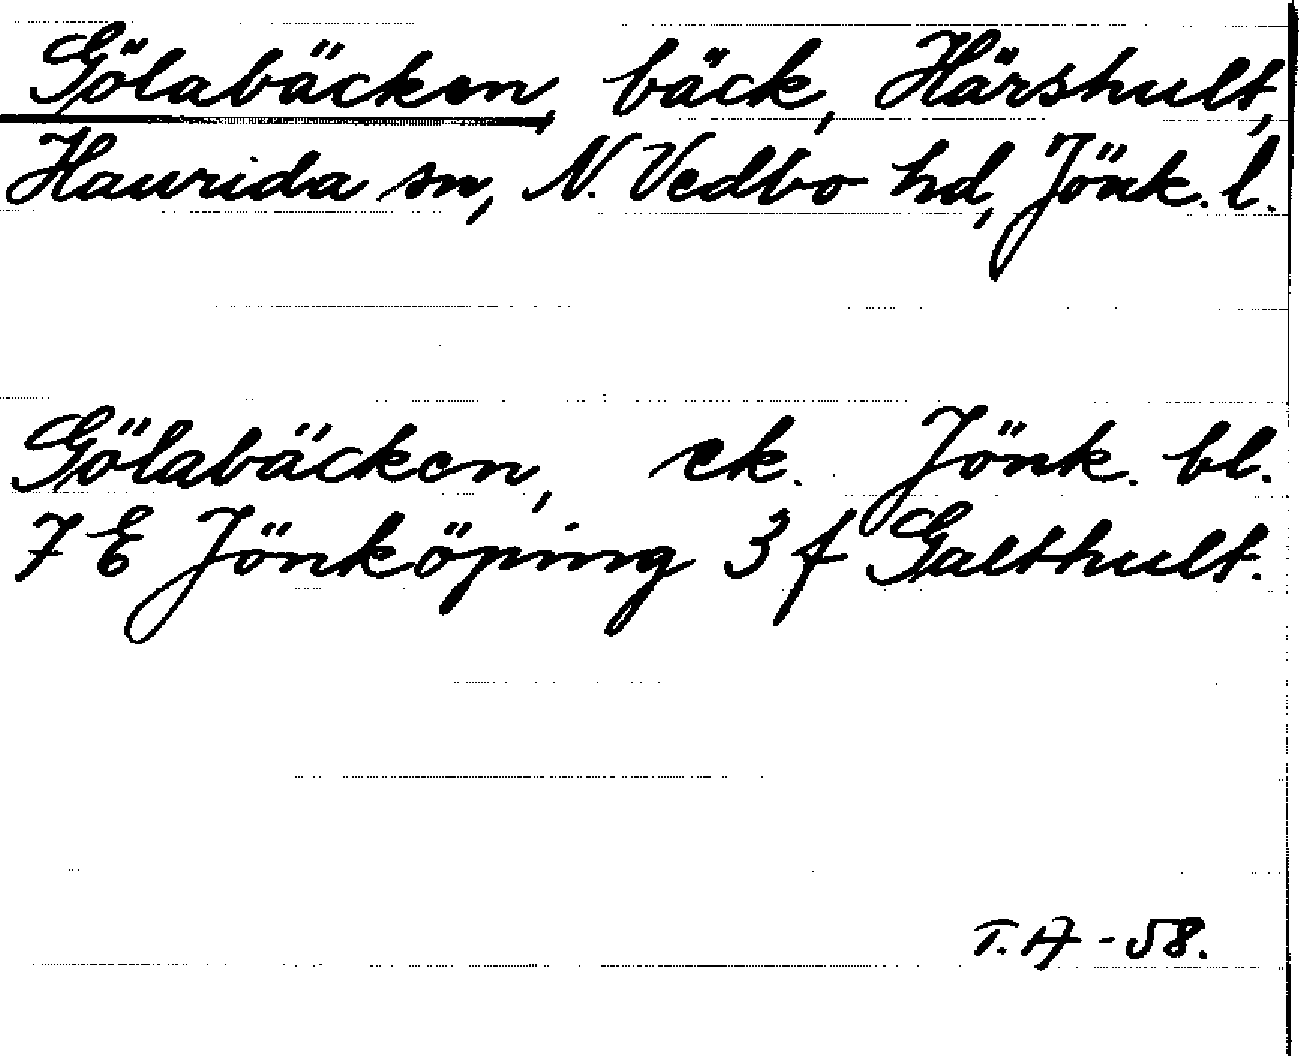 Gölabäcken, bäck, Härshult,
Haurida sn, N. Vedbo hd, Jönk. l.
Gölabäcken, ek. Jönk. bl.
7 E Jönköping 3 f Galthult.
T. A - 58.